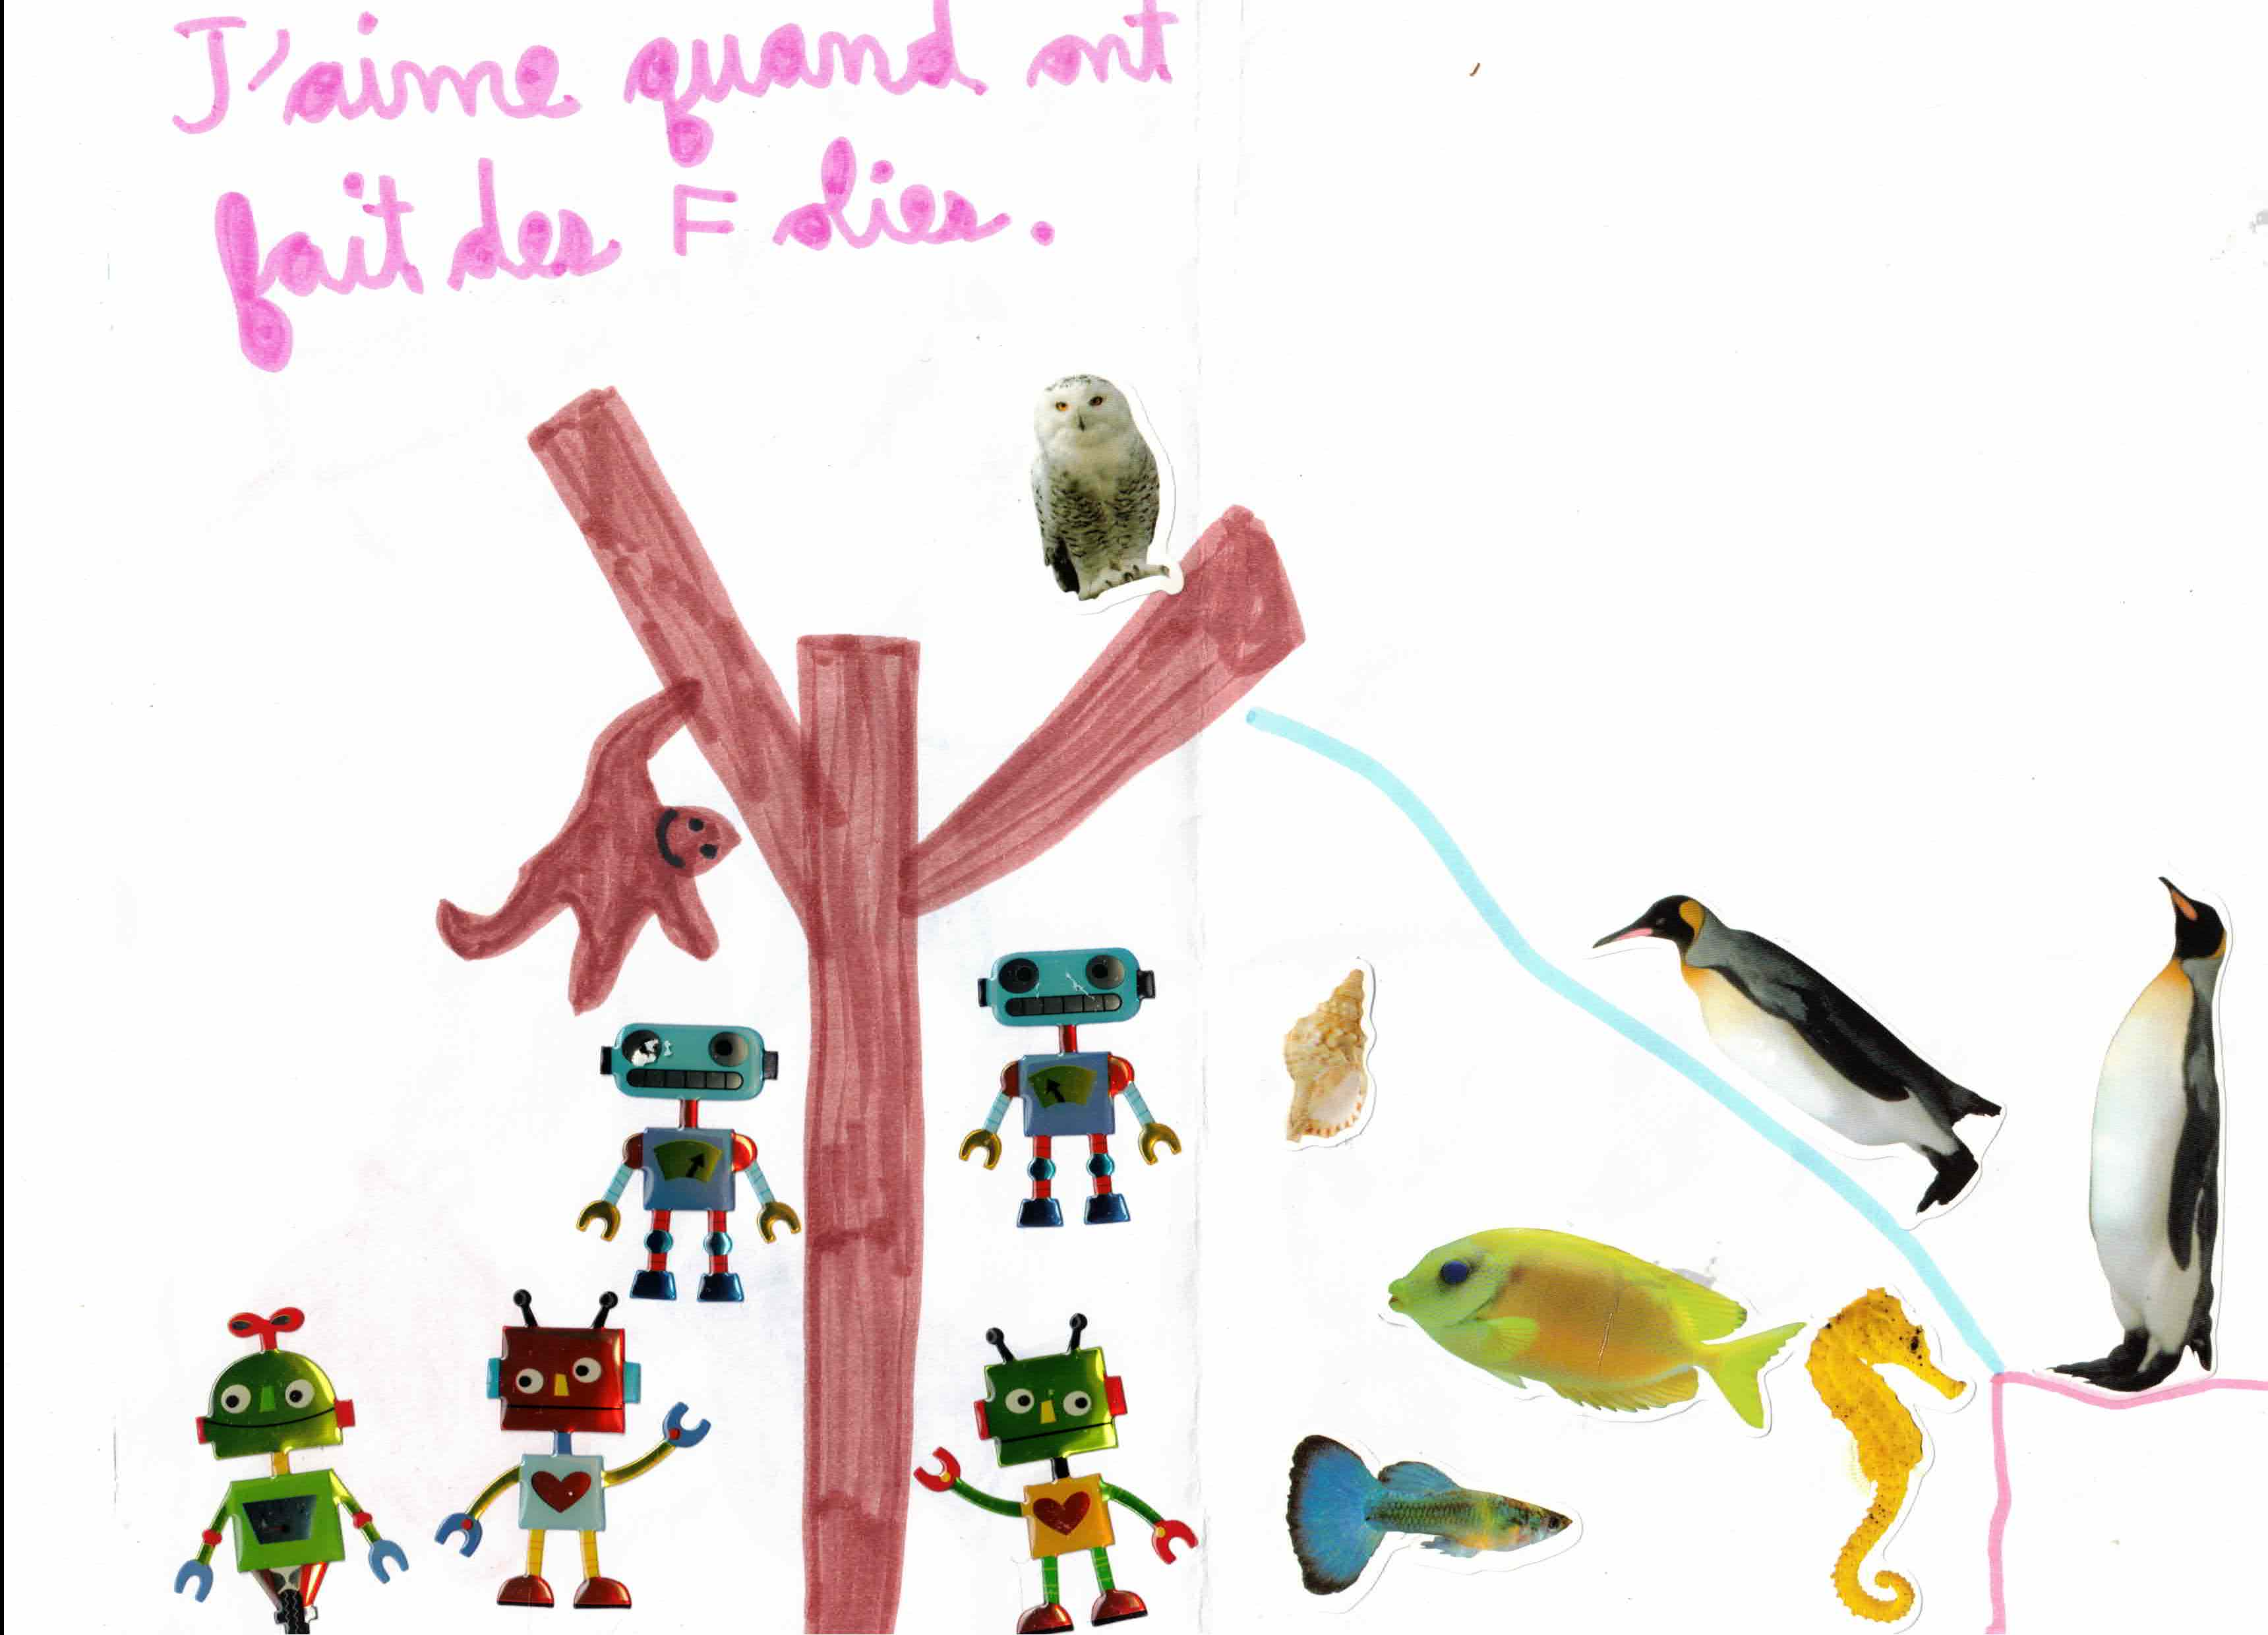 J'aime quand ont
fait des Folies.